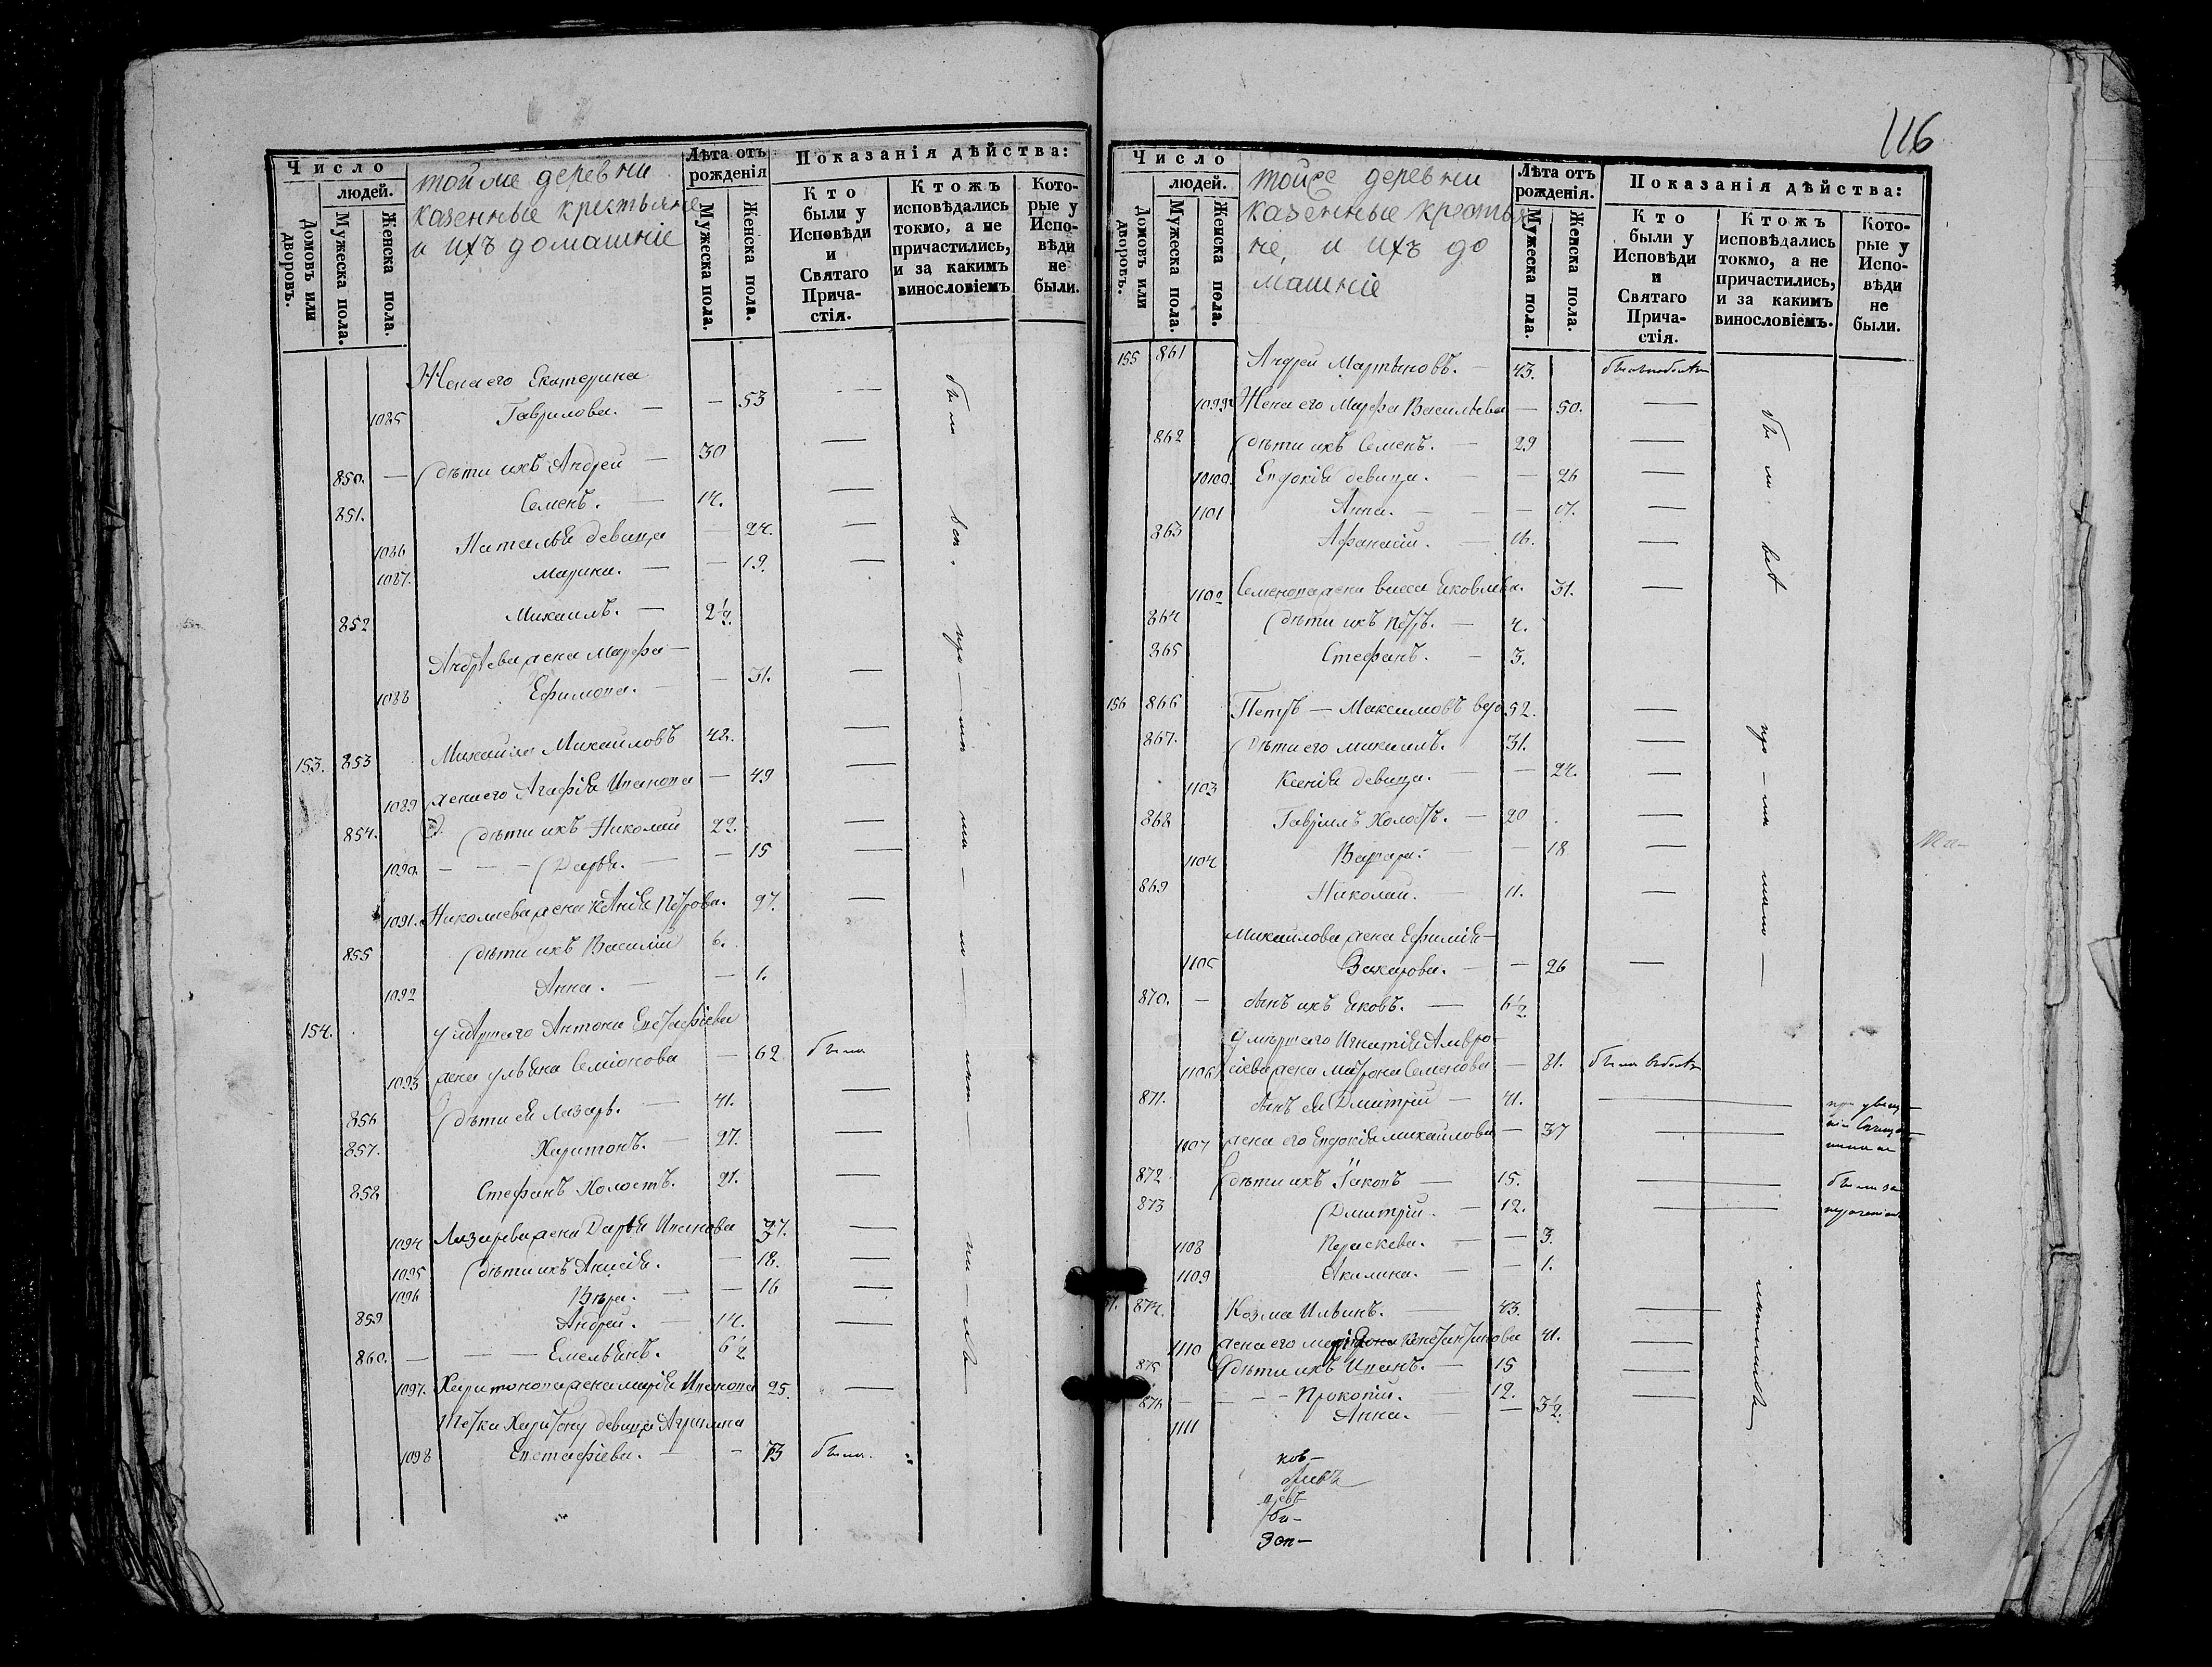 116
Число
людей.
Домовъ или дворовъ.
Мужеска пола.
Женска пола.
тойже деревни
казенные крестьяне
и ихъ домашніе
Лѣта отъ рожденія
Мужеска пола.
Женска пола.
Показанія дѣйства:
Кто были у Исповѣди и Святаго Прича-стія.
Ктожъ исповѣдались токмо, а не причастились, и за какимъ винословіемъ
Кото-рые у Испо-вѣди не были.
Жена его Екатерина
1085 Гаврилова. — — 53
850. — дѣти ихъ Андрей — 30
851. Семенъ. — 14.
1086 Наталья девица — 24.
1087. Марина. — — 19.
852 Михаилъ. — 2½.
Андреева жена Марфа —
1088 Ефимова. — — 31.
153. 853 Михаило Михаиловъ 48.
1089 жена его Агафія Иванова — 49
854. дѣти ихъ Николай 22.
1090. — — — Дарья. — — 15
1091. Николаева жена Ксенія Петрова. 27.
855 дѣти ихъ Василій 6.
1092 Анна. — — 1.
154. умершего Антона Евстафіева
1093 жена Ульяна Семіонова — 62 была
856 дѣти ея Лазарь. — 41.
857. Харитонъ. — 27.
858 Стефанъ Холостъ. 21.
1094 Лазарева жена Дарья Иванова 37.
1095 дѣти ихъ Анисія. — 18.
1096 Вѣра. — — 16
859 Андрей. — 14.
860. — — — Емельянъ. 6½
1097. Харитонова жена марія Иванова 25.
Тетка Харитону девица Агрипина
1098 Евстафіева. — — 73 была.
Число
людей.
Домовъ или дворовъ.
Мужеска пола.
Женска пола.
тойже деревни
казенные крестья
не, и ихъ до
машніе
Лѣта отъ рожденія.
Мужеска пола.
Женска пола.
Показанія дѣйства:
Кто были у Исповѣди и Святаго Прича-стія.
Ктожъ исповѣдались токмо, а не причастились, и за какимъ винословіемъ.
Кото-рые у Испо-вѣди не были.
155 861 Андрей Мартыновъ. — 43.
1099 Жена его Марфа Васильева — 50.
862 дѣти ихъ Семенъ. — 29
Евдокія девица. — — 26
1101 Анна. — — — 17.
863 Афанасій. — 16.
1102 Семенова жена Васса Яковлева. 31.
864 дѣти ихъ Петръ. — 4.
865 Стефанъ. — 3.
156 866 Петръ — Максимовъ вдо 52.
867. Дѣти его михаилъ. 31.
1103 Ксенія девица. — — 24.
868 Гавріилъ Холостъ. — 20
1104 Варвара. — — 18
869 Николай. — 11.
Михаилова жена Ефимія —
1105 Захарова. — — 26
870. — сынъ ихъ Яковъ. — 6½
Умершего Игнатія Амвро
1106 сіева жена Матрона Семенова — 81.
871. сынъ ея Дмитрій — 41.
1107 жена его Евдокія михайлова — 37
872 дѣти ихъ Іаковъ — 15.
873 Дмитрій. — 12.
1108 Параскева. — — 3.
1109 Акилина. — — 1.
874. Козма Ильинъ. — 43.
1110 жена его марія Константинова 41.
875 дѣти ихъ Иванъ. — 15
876 — — — Прокопій. 12.
1111 Анна. — — 3½.